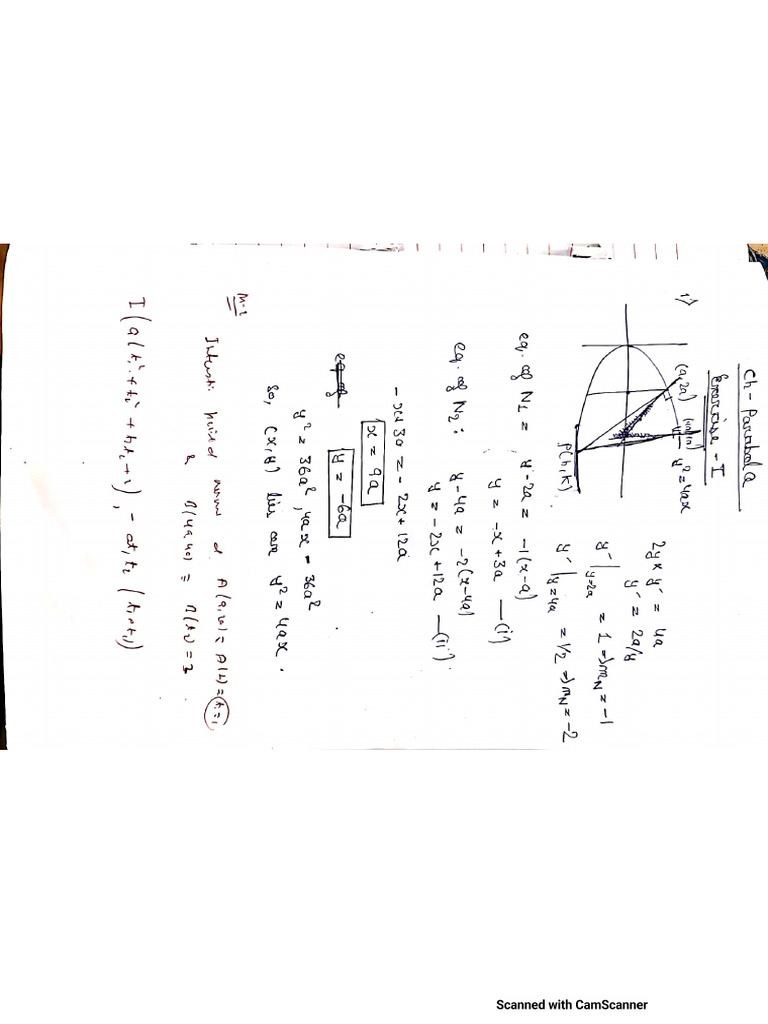 Ch - Parabola
Exercise - I
1)
(a, 2a)
y² = 4ax
P(h, k)
2y × y' = 4a
y' = 2a/y
y'|y=2a = 1 ⇒ mN = -1
y'|y=4a = 1/2 ⇒ mN = -2
eq. of N1 = y - 2a = -1(x-a)
y = -x + 3a —(i)
eq. of N2: y - 4a = -2(x-4a)
y = -2x + 12a —(ii).
-x + 3a = -2x + 12a
x = 9a
eq. of
y = -6a
y² = 36a², 4ax = 36a²
So, (x, y) lies on y² = 4ax.
M-2
point A(a, 2a) = A(t1) = t=1
& B(4a, 4a) = B(t2) = 2
I (a(t1² + t2² + t1t2 + 2), -at1t2 (t1+t2))
Scanned with CamScanner